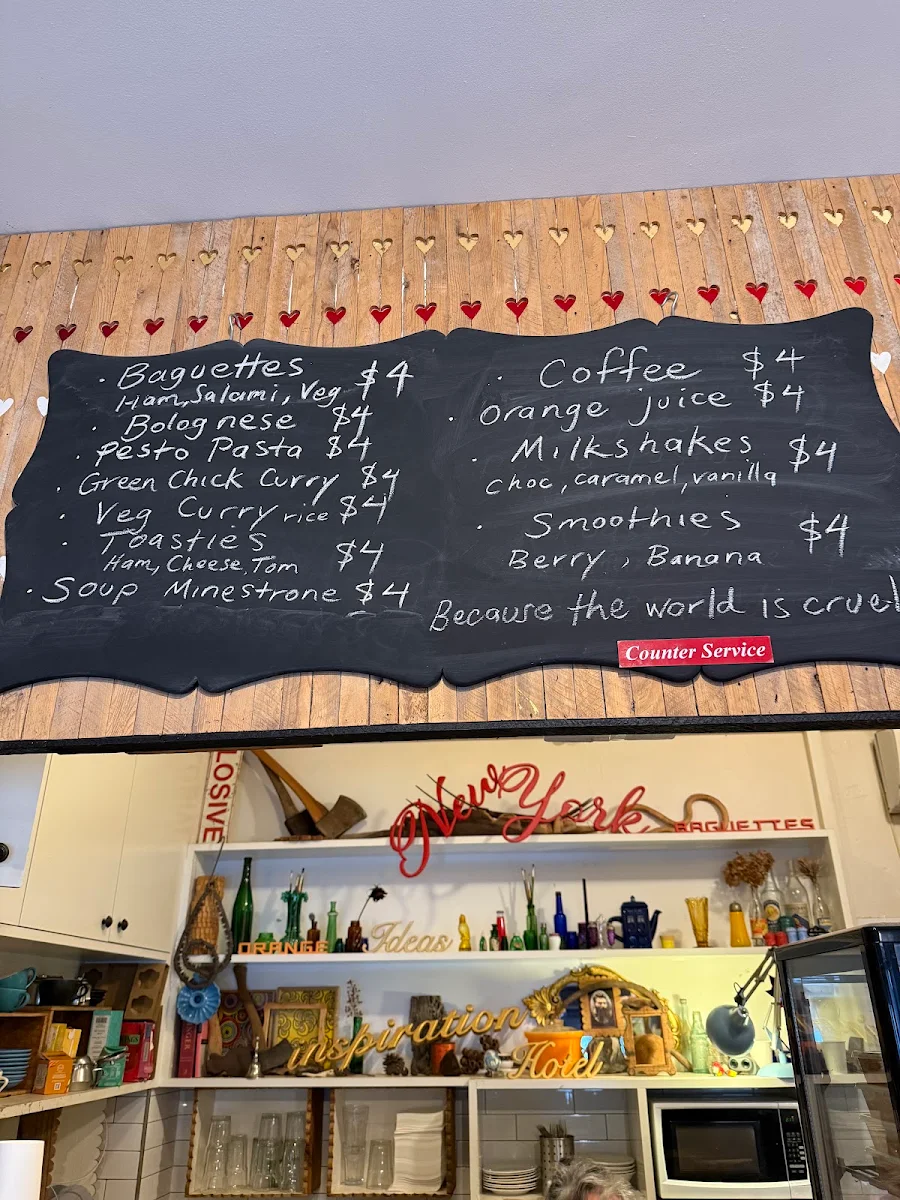 · Baguettes $4
Ham, Salami, Veg
· Bolognese $4
· Pesto Pasta $4
· Green Chick Curry $4
· Veg Curry rice $4
· Toasties $4
Ham, Cheese, Tom
· Soup Minestrone $4
· Coffee $4
· Orange juice $4
· Milkshakes $4
choc, caramel, vanilla
· Smoothies $4
Berry, Banana
Because the world is cruel
Counter Service
LOSIVE
New York
BAGUETTES
ORANGE
Ideas
inspiration
Hotel